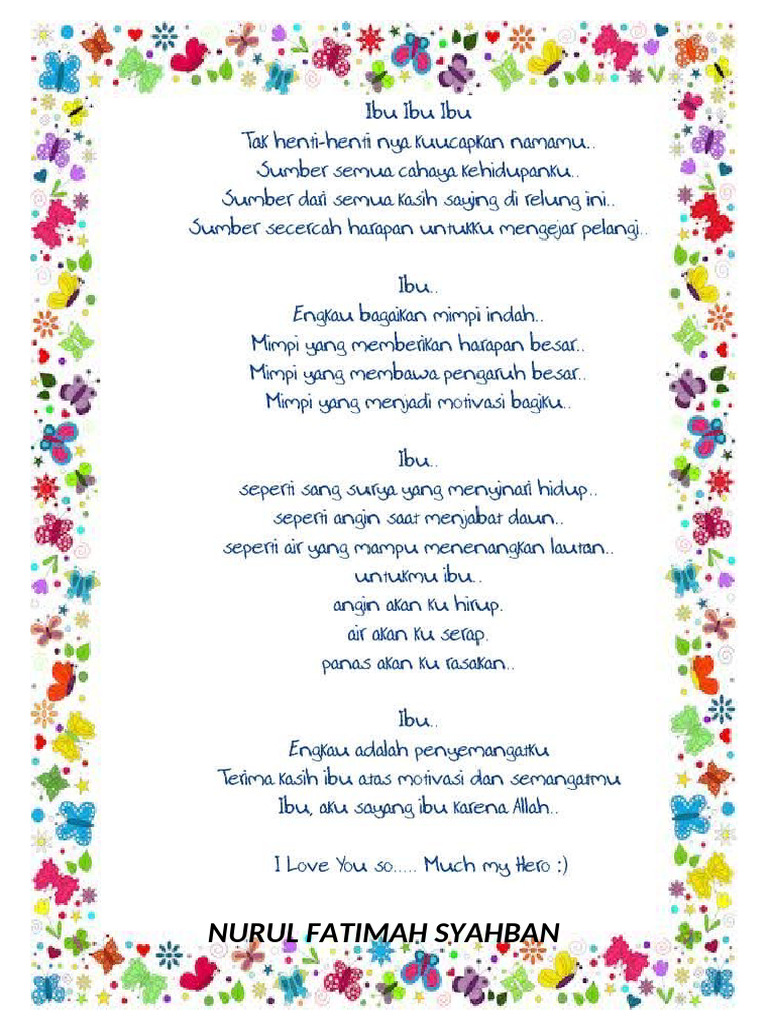 Ibu Ibu Ibu
Tak henti-henti nya kuucapkan namamu..
Sumber semua cahaya kehidupanku..
Sumber dari semua kasih saying di relung ini..
Sumber secercah harapan untukku mengejar pelangi..
Ibu..
Engkau bagaikan mimpi indah..
Mimpi yang memberikan harapan besar..
Mimpi yang membawa pengaruh besar..
Mimpi yang menjadi motivasi bagiku..
Ibu..
seperti sang surya yang menyinari hidup..
seperti angin saat menjabat daun..
seperti air yang mampu menenangkan lautan..
untukmu ibu..
angin akan ku hirup.
air akan ku serap.
panas akan ku rasakan..
Ibu..
Engkau adalah penyemangatku
Terima kasih ibu atas motivasi dan semangatmu
Ibu, aku sayang ibu karena Allah..
I Love You so..... Much my Hero :)
NURUL FATIMAH SYAHBAN